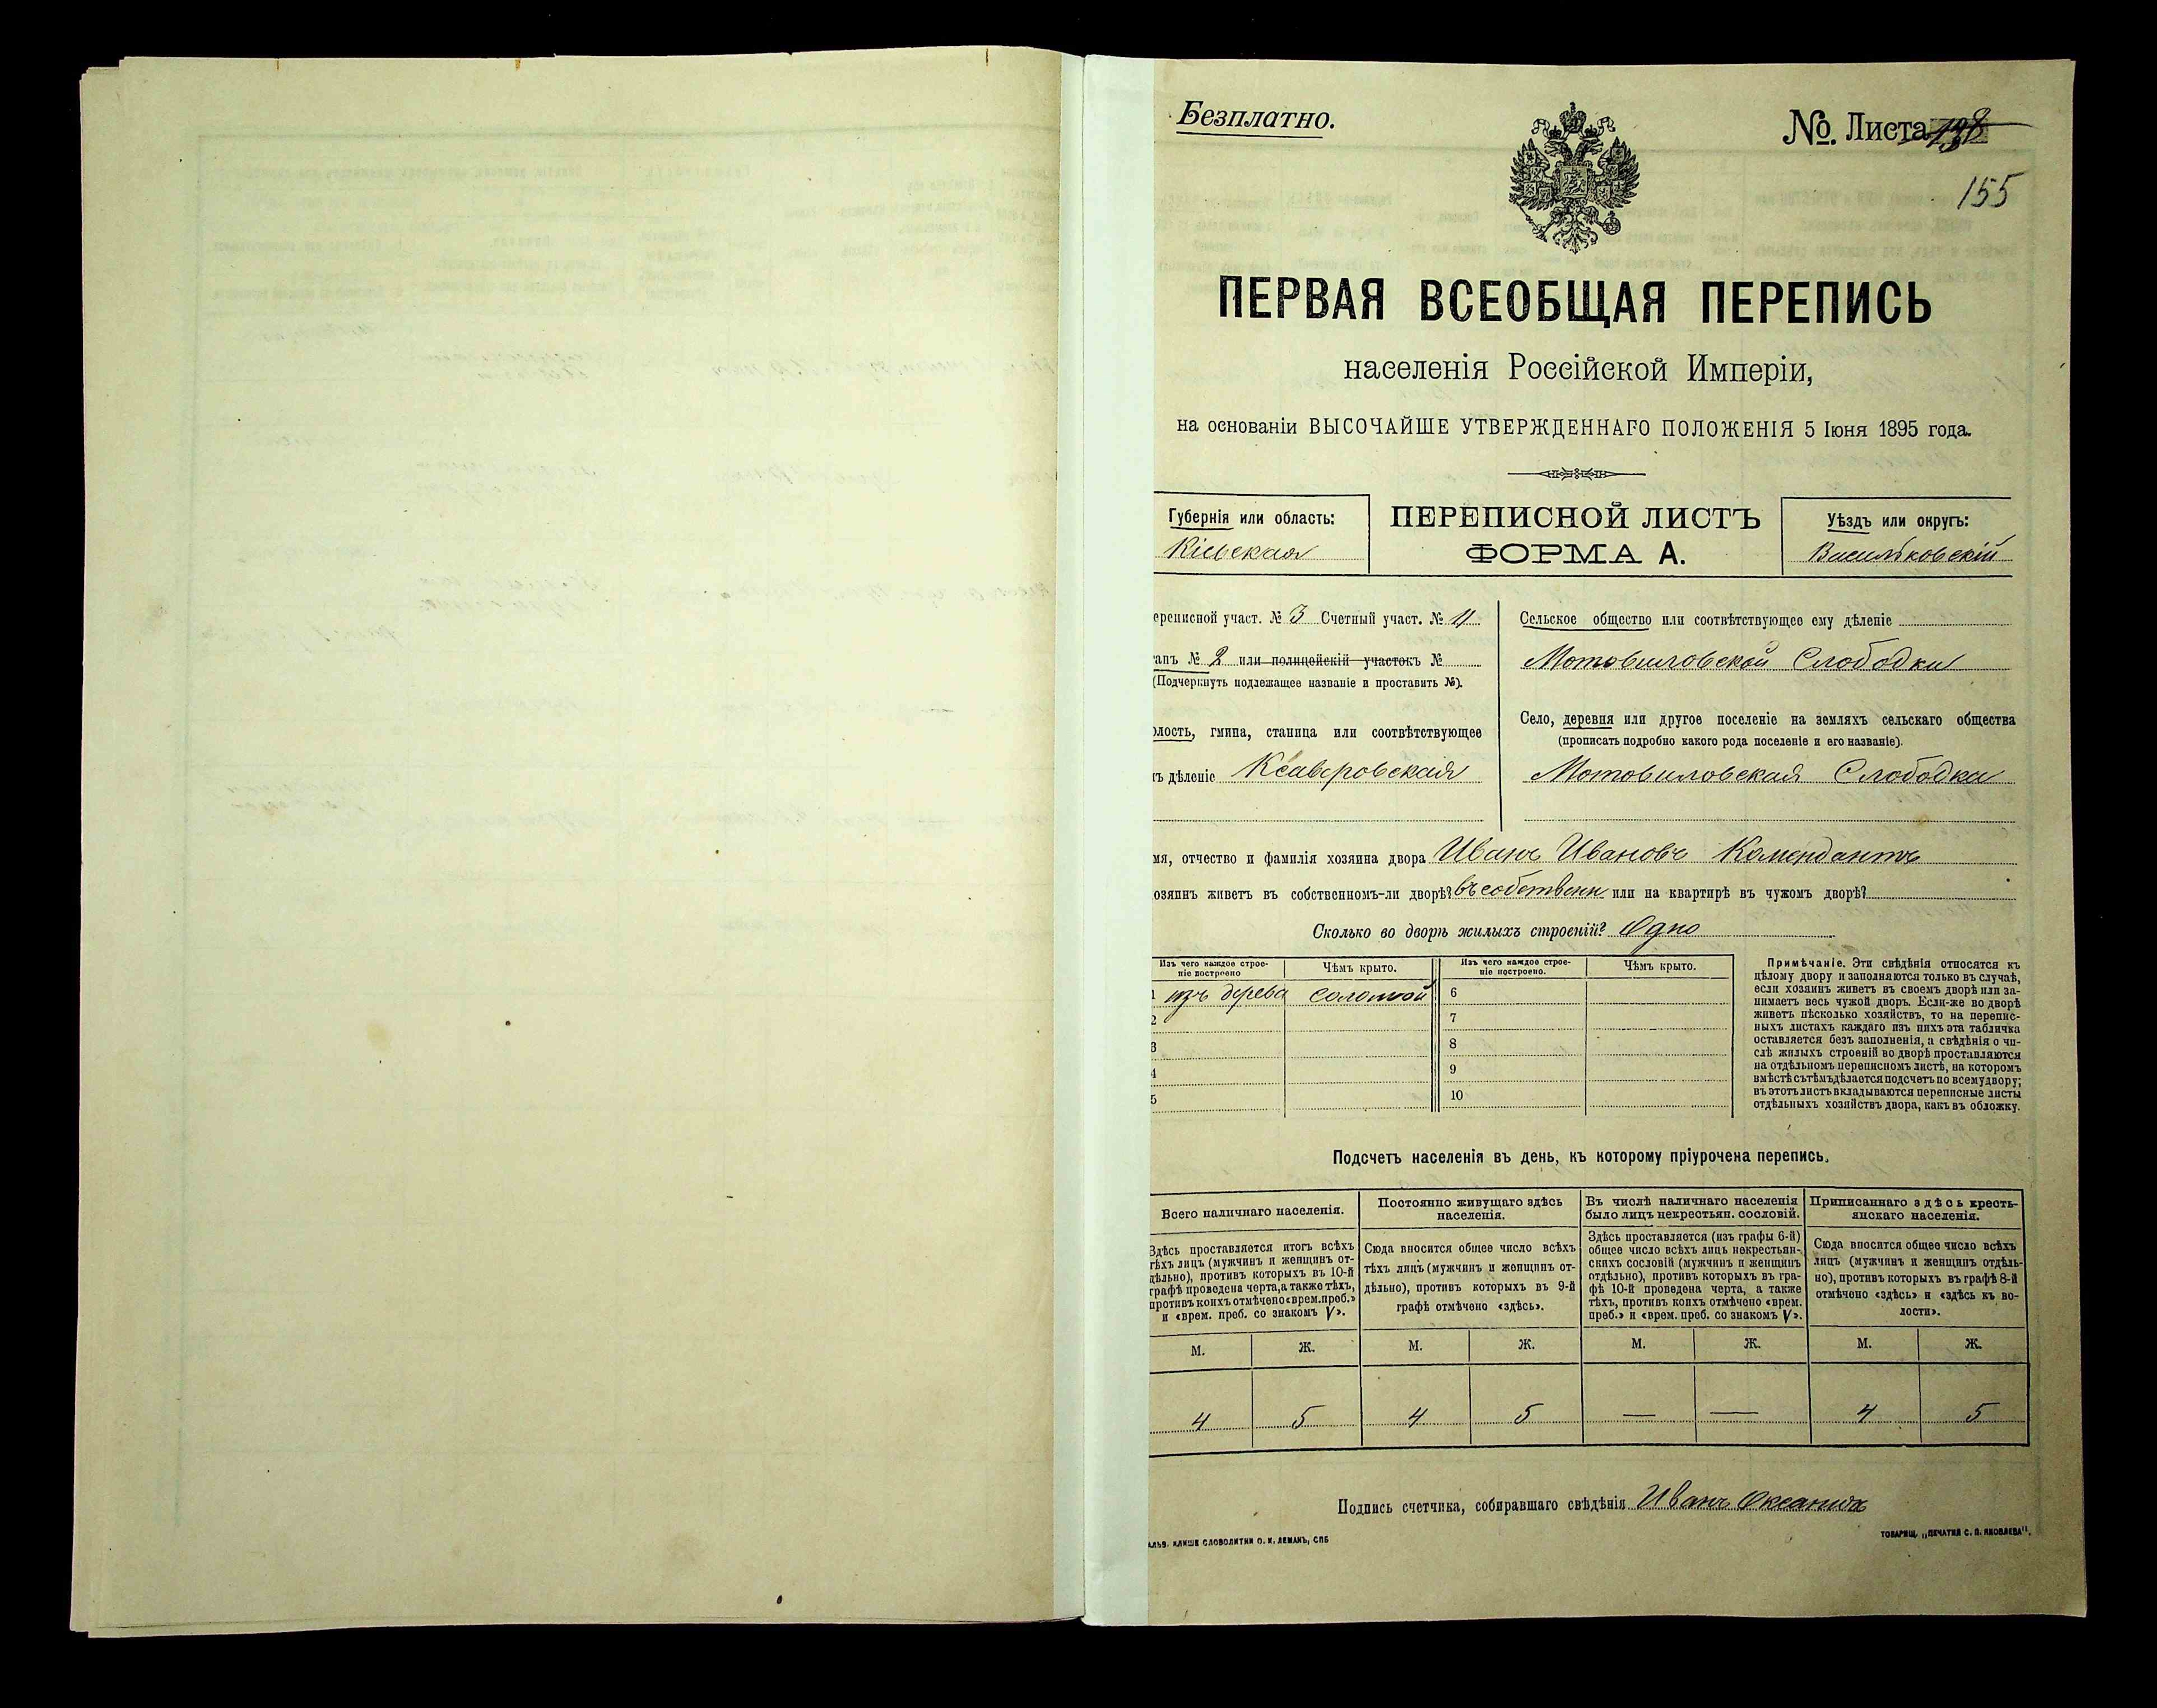 Безплатно.
№ Листа 138
155
ПЕРВАЯ ВСЕОБЩАЯ ПЕРЕПИСЬ
населенія Россійской Имперіи,
на основаніи ВЫСОЧАЙШЕ УТВЕРЖДЕННАГО ПОЛОЖЕНІЯ 5 Іюня 1895 года.
Губернія или область:
Кіевская
ПЕРЕПИСНОЙ ЛИСТЪ
ФОРМА А.
Уѣздъ или округъ:
Васильковскій
ереписной участ. № 3 Счетный участ. № 11
апъ № 2 или полицейскій участокъ №
(Подчеркнуть подлежащее названіе и проставить №).
олость, гмина, станица или соотвѣтствующее
ъ дѣленіе Ксаверовская
Сельское общество или соотвѣтствующее ему дѣленіе
Мотовиловской Слободки
Село, деревня или другое поселеніе на земляхъ сельскаго общества
(прописать подробно какого рода поселеніе и его названіе).
Мотовиловская Слободка
мя, отчество и фамилія хозяина двора Иванъ Ивановъ Комендантъ
озяинъ живетъ въ собственномъ-ли дворѣ? въ собственн или на квартирѣ въ чужомъ дворѣ?
Сколько во дворѣ жилыхъ строеній? Одно
Изъ чего каждое строе-
ніе построено
Чѣмъ крыто.
Изъ чего каждое строе-
ніе построено.
Чѣмъ крыто.
1 изъ дерева соломой 6
2 7
3 8
4 9
5 10
Примѣчаніе. Эти свѣдѣнія относятся къ
цѣлому двору и заполняются только въ случаѣ,
если хозяинъ живетъ въ своемъ дворѣ или за-
нимаетъ весь чужой дворъ. Если-же во дворѣ
живетъ нѣсколько хозяйствъ, то на перепис-
ныхъ листахъ каждаго изъ нихъ эта табличка
оставляется безъ заполненія, а свѣдѣнія о чи-
слѣ жилыхъ строеній во дворѣ проставляются
на отдѣльномъ переписномъ листѣ, на которомъ
вмѣстѣ съ тѣмъ дѣлается подсчетъ по всему двору;
въ этотъ листъ вкладываются переписные листы
отдѣльныхъ хозяйствъ двора, какъ въ обложку.
Подсчетъ населенія въ день, къ которому пріурочена перепись.
Всего наличнаго населенія.
Здѣсь проставляется итогъ всѣхъ
тѣхъ лицъ (мужчинъ и женщинъ от-
дѣльно), противъ которыхъ въ 10-й
графѣ проведена черта, а также тѣхъ,
противъ коихъ отмѣчено «врем. преб.»
и «врем. преб. со знакомъ V».
Постоянно живущаго здѣсь
населенія.
Сюда вносится общее число всѣхъ
тѣхъ лицъ (мужчинъ и женщинъ от-
дѣльно), противъ которыхъ въ 9-й
графѣ отмѣчено «здѣсь».
Въ числѣ наличнаго населенія
было лицъ некрестьян. сословій.
Здѣсь проставляется (изъ графы 6-й)
общее число всѣхъ лицъ некрестьян-
скихъ сословій (мужчинъ и женщинъ
отдѣльно), противъ которыхъ въ гра-
фѣ 10-й проведена черта, а также
тѣхъ, противъ коихъ отмѣчено «врем.
преб.» и «врем. преб. со знакомъ V».
Приписаннаго здѣсь кресть-
янскаго населенія.
Сюда вносится общее число всѣхъ
лицъ (мужчинъ и женщинъ отдѣль-
но), противъ которыхъ въ графѣ 8-й
отмѣчено «здѣсь» и «здѣсь къ во-
лости».
М. Ж. М. Ж. М. Ж. М. Ж.
4 5 4 5 — — 4 5
Подпись счетчика, собиравшаго свѣдѣнія Иванъ
КЛИШЕ СЛОВОЛИТНИ О. И. ЛЕМАНЪ, СПБ
ТОВАРИЩ. „ПЕЧАТНЯ С. П. ЯКОВЛЕВА".